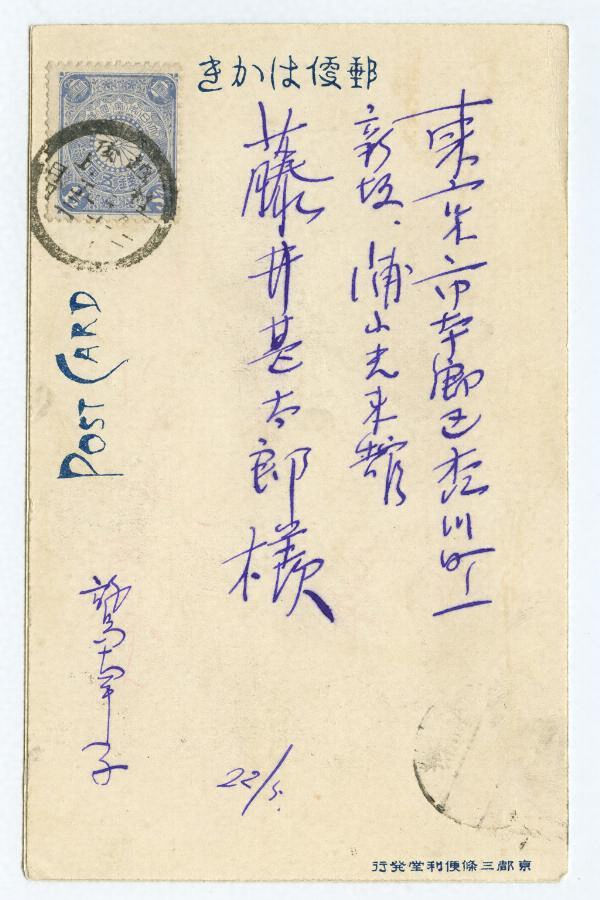 郵便はかき
東京市本郷区森川町一
新坂、蒲山光来館
藤井甚太郎様
POST CARD
22/5.
京都三條便利堂発行